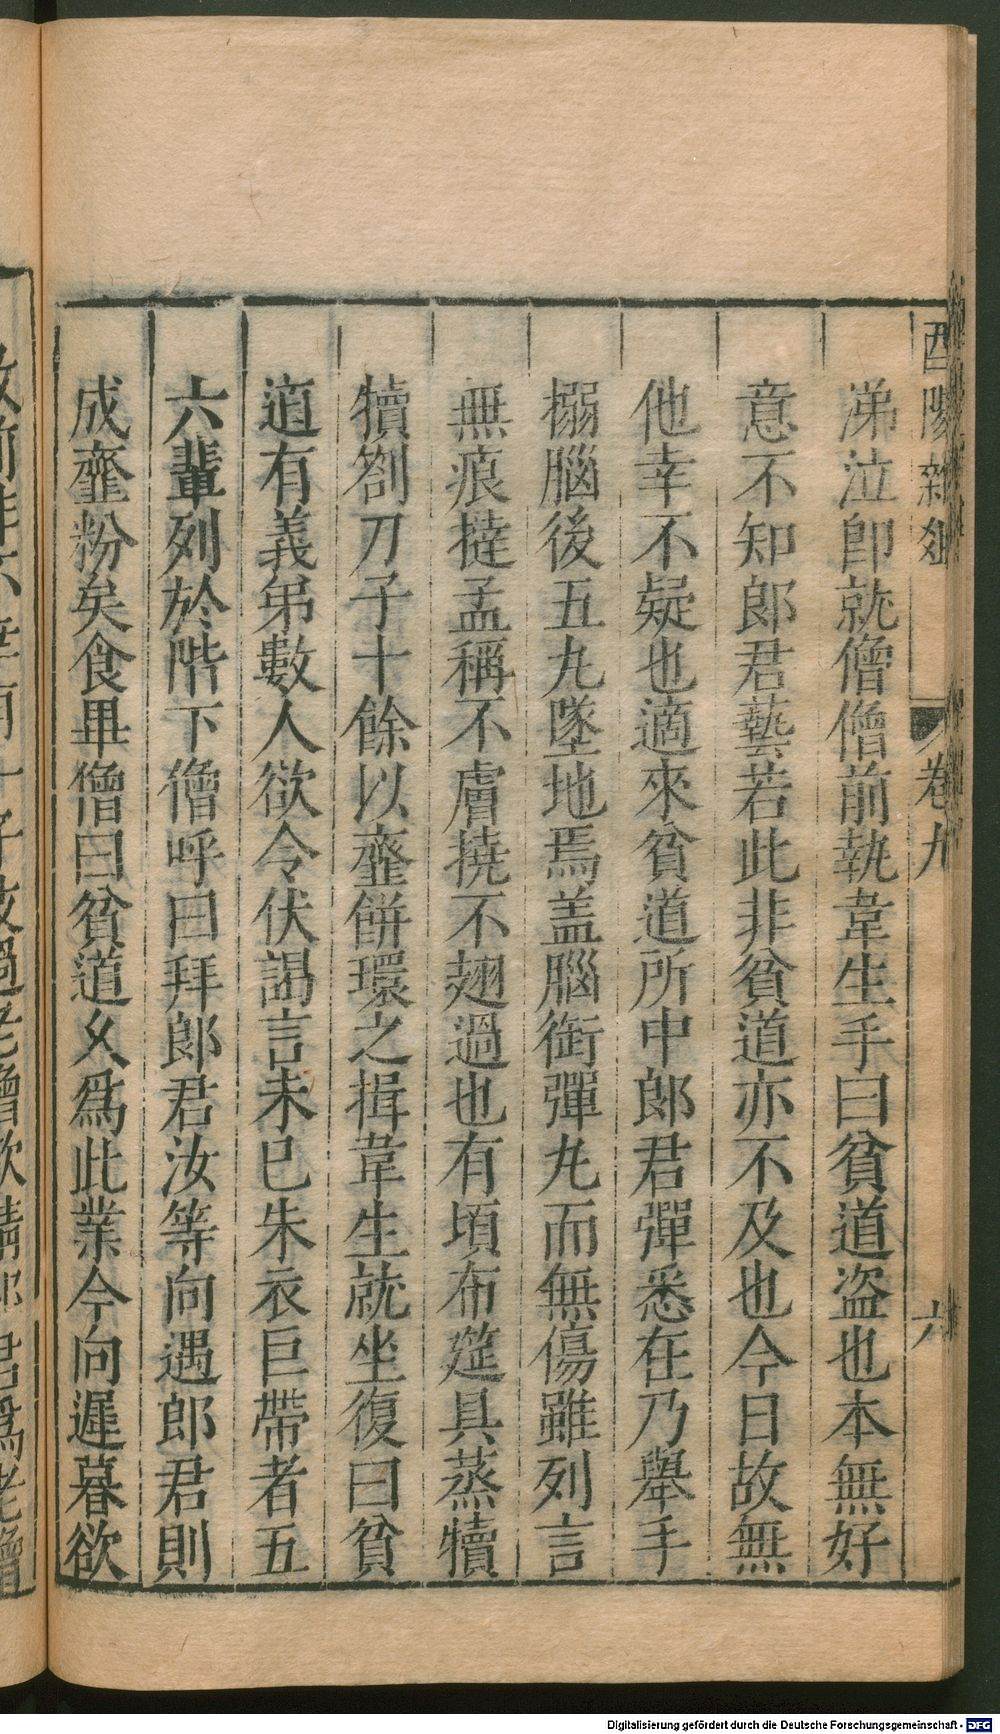 酉陽雜俎
卷九
六
涕泣卽就僧僧前執韋生手曰貧道盜也本無好
意不知郎君藝若此非貧道亦不及也今日故無
他幸不疑也適來貧道所中郎君彈悉在乃舉手
搦腦後五丸墜地焉盖腦銜彈丸而無傷雖列言
無痕撻孟稱不膚撓不翅過也有頃布筵具蒸犢
犢劄刀子十餘以虀餅環之揖韋生就坐復曰貧
道有義弟數人欲令伏謁言未已朱衣巨帶者五
六輩列於階下僧呼曰拜郎君汝等向遇郎君則
成虀粉矣食畢僧曰貧道久爲此業今向遲暮欲
Digitalisierung gefördert durch die Deutsche Forschungsgemeinschaft - DFG